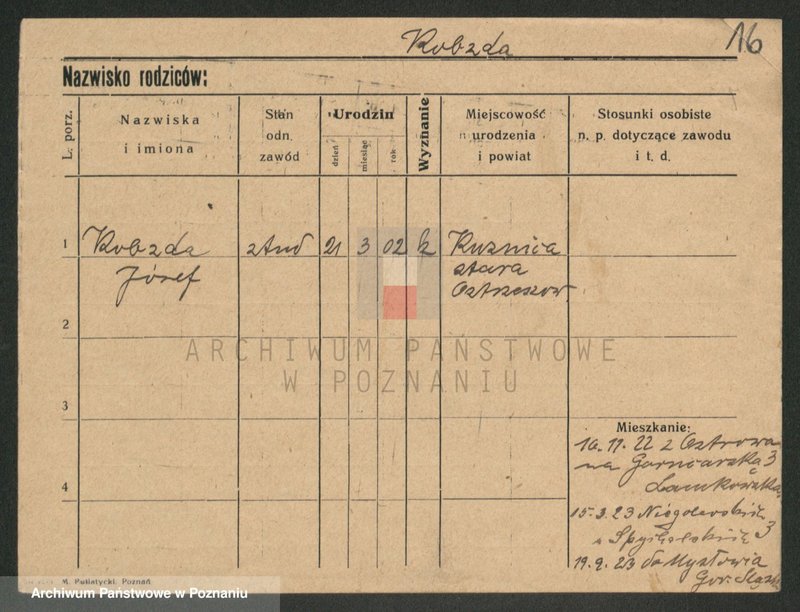 Kobzda
16
Nazwisko rodziców:
L. porz.
Nazwiska
i imiona
Stan
odn.
zawód
Urodzin
dzień
miesiąc
rok
Wyznanie
Miejscowość
urodzenia
i powiat
Stosunki osobiste
n. p. dotyczące zawodu
i t. d.
1 Kobzda stud 21 3 02 k Kuznica
Józef stara
Ostrzeszow
2
3
4
ARCHIWUM PAŃSTWOWE
W POZNANIU
Mieszkanie:
16.11.22 z Ostrowa
na Garncarską 3
15.3.23 3
19.9.23 do Mysłowic
Gor.
M. Putiatycki, Poznań
Archiwum Państwowe w Poznaniu